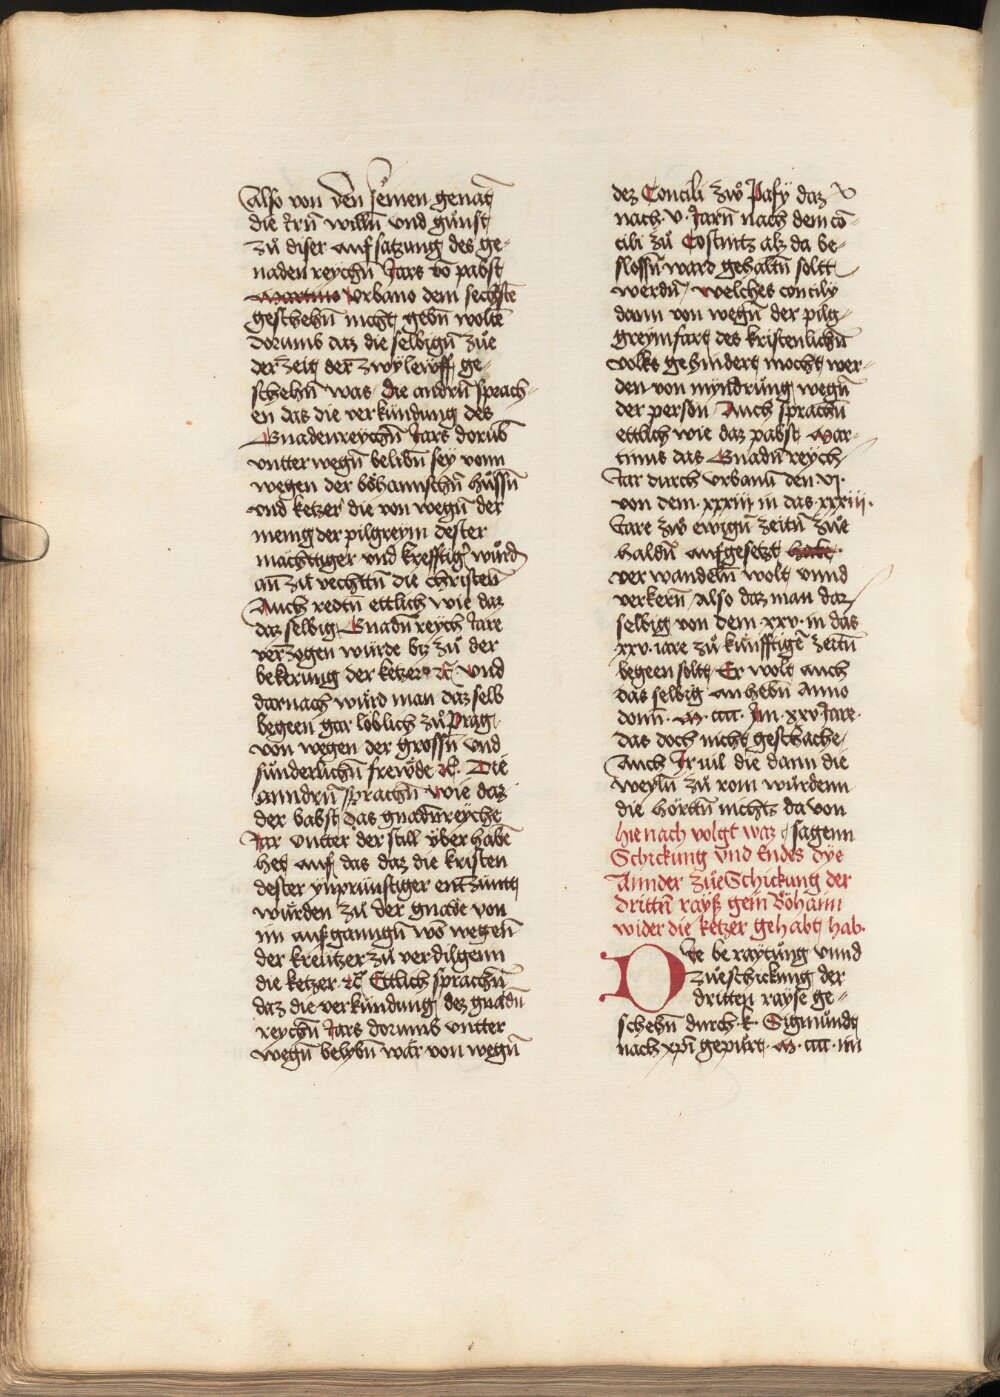 Also von den seinen genat
die irn̄ willn̄ vnd gunst
zů diser aufsatzung des ge-
naden reychn̄ Jars vō pabst
martino Vrbano dem sechste
geschehn̄ nicht gebn̄ woltē
dorumb daz die selbign̄ zůe
der zeit der zwyleyff ge-
schehn̄ was Die andrn̄ sprach-
en das die verkundung des
Gnadenreychn̄ Jars dorūb
vntter wegn̄ belibn̄ sey vonn
wegen der böhannischn̄ hussn̄
vnd ketzer die von wegn̄ der
menig der pilgreym dester
machttiger vnd krefftig' wurd
an̄ zů vechttn̄ die christen̄
Auch redtn̄ ettlich wie daz
daz selbig Gnadn̄ reych Jare
verzogen wurde biz zů der
bekerung der ketzer ꝛc̄ vnd
darnach wurd man daz selb
begeen gar löblich zů Prag
von wegen der grossn̄ vnd
sunderlichn̄ frewde ꝛc̄. Die
anndrn̄ sprachn̄ wie daz
der babst das gnadn̄reyche
Jar vntter der still vber habē
het auf das daz die kristen
dester ynprünstiger entzuntt
wurden zů der gnade von
im aufgangn̄ vō wegen̄
der kreutzer zů verdilgenn
die ketzer ꝛc̄ Ettlich sprachn̄
daz die verkundung dez gnadn̄
reychn̄ Jars dorumb vntter
wegn̄ belybn̄ wär von wegn̄
dez Concili zwo Pafy daz v
nach v. Jarn̄ nach dem cō-
cili zů Costnitz alz da be-
slossn̄ ward gehaltn̄ soltt
werdn̄ welches concily
dann von wegn̄ der pilg-
greymfart des kristenlichn̄
volks gehindert mocht wer-
den von myndrung wegn̄
der person Auch sprachn̄
ettlich wie daz pabst Mar-
tinus das Gnadn̄ reych
Jar durch vrbanū den vj.
von dem xxxiij in das xxxiij.
Jare zwo ewign̄ zeitn̄ zůe
haldn̄ aufgesetzt hatte.
ver wandeln̄ wolt vnnd
verkern̄ Also daz man daz
selbig von dem .xxv. in das
xxv. iare zů kunfftigē zeitn̄
begeen soltt Er wolt auch
das selbig anhebn̄ Anno
domi. M. cccc. Im. xxv Jare.
das doch nicht geschache
Auch Jr vil die dann die
weyln̄ zů rom wurdenn
die hörttn̄ nichts da von
hie nach volgt war sagenn
Schickung vnd endes dye
Annder zůeSchickung der
drittn̄ rayß gein Böhaim
wider die ketzer gehabt hab.
Dye beraytung vnnd
zůeschickung der
dritten rayse ge-
schehn̄ durch k. Sigmundt
nach xpī gepurt. M. cccc. im